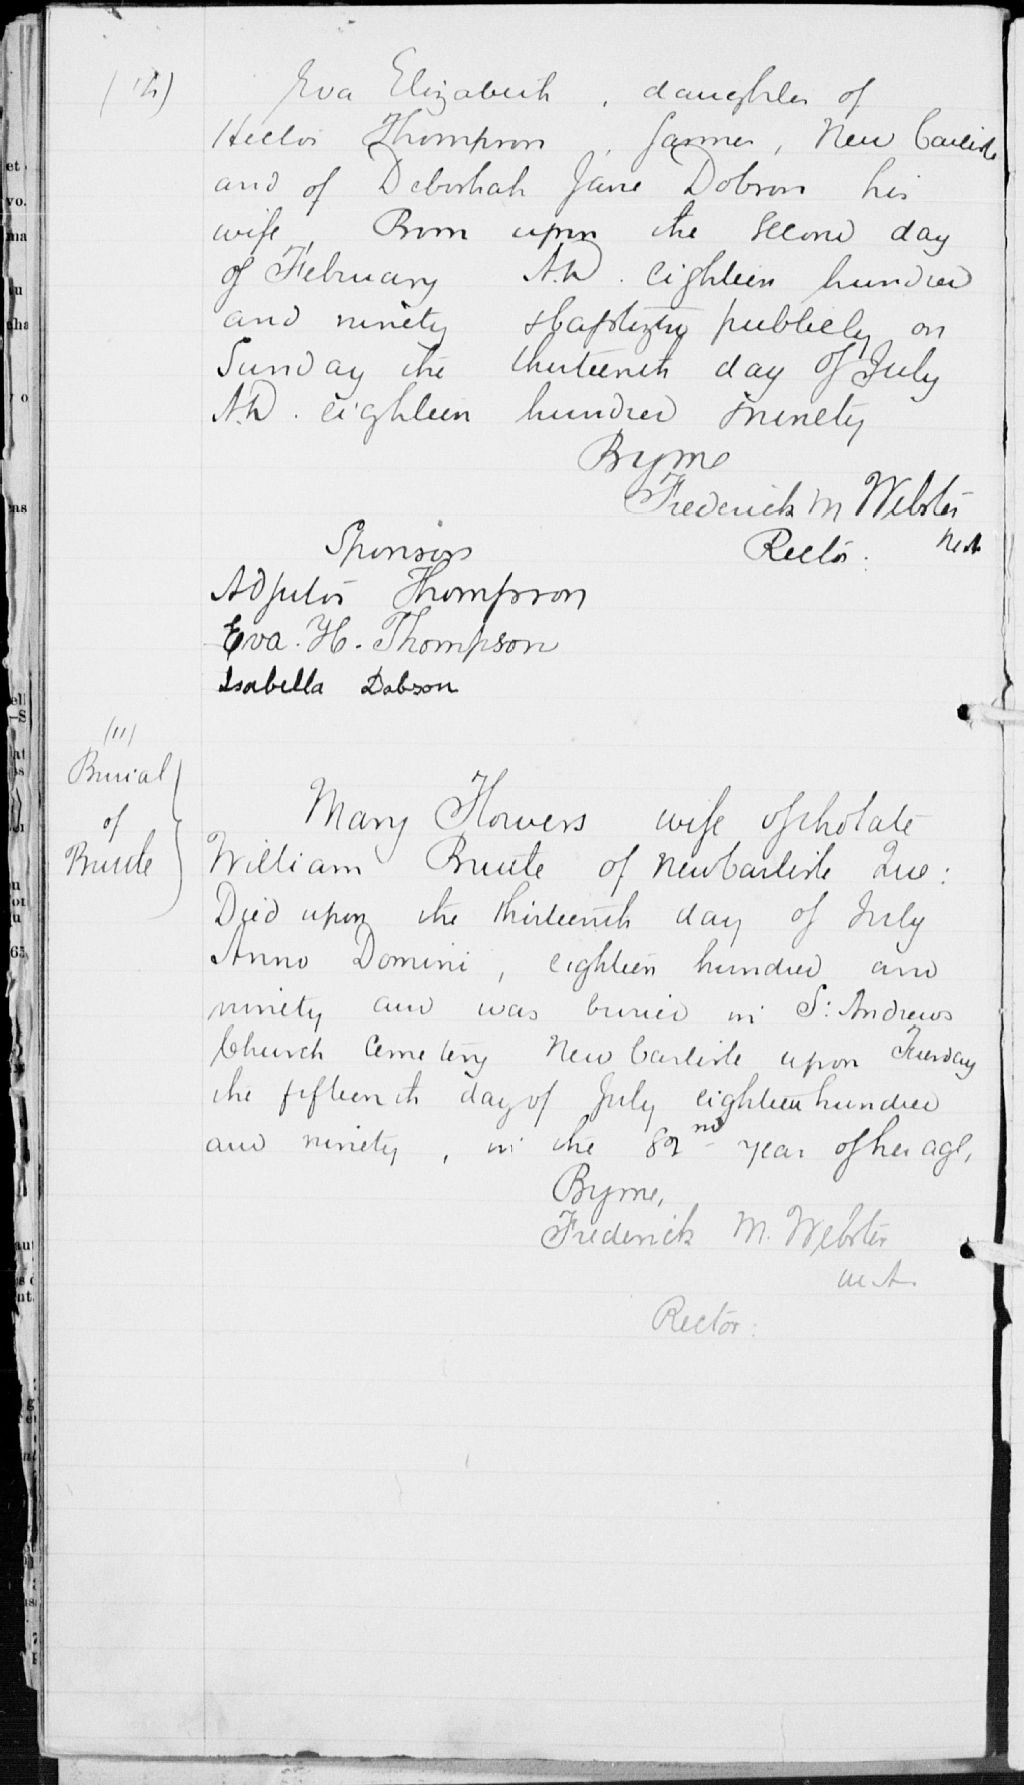 Eva Elizabeth, daughter of
Hector Thompson, farmer, New Carlisle
and of Deborhah Jane Dobson his
wife, Born upon the second day
of February A.D. eighteen hundred
and ninety & baptized publicly on
Sunday the thirteenth day of July
A.D. eighteen hundred & ninety
By me
Frederick M Webster
M.A.
Rector.
Sponsors
Adjutor Thompson
Eva. H. Thompson
Isabella Dobson
(11)
Burial
of
Mary Flowers wife of the late
William of New Carlisle Que:
Died upon the thirteenth day of July
Anno Domini, eighteen hundred and
ninety and was buried in St. Andrews
Church Cemetery New Carlisle upon Tuesday
the fifteenth day of July eighteen hundred
and ninety, in the 82nd year of her age,
By me,
Frederick M. Webster
M.A.
Rector: